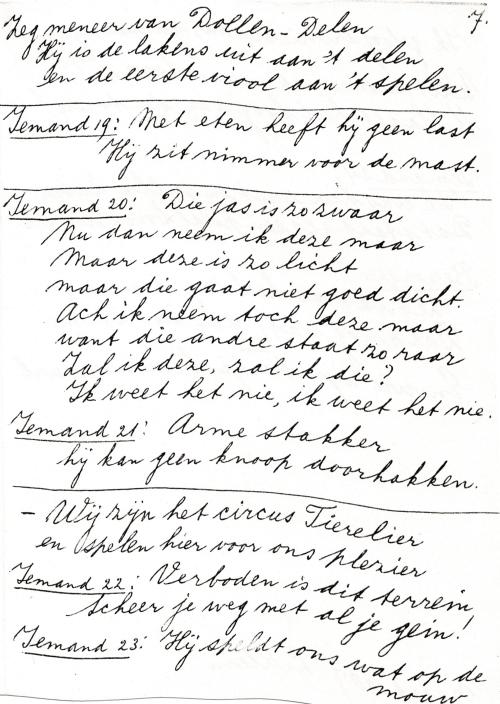 7.
Zeg meneer van Dollen-Delen
Hij is de lakens uit aan 't delen
en de eerste viool aan 't spelen.
Iemand 19: Met eten heeft hij geen last
Hij zit nimmer voor de mast.
Iemand 20: Die jas is zo zwaar
Nu dan neem ik deze maar
Maar deze is zo licht
maar die gaat niet goed dicht.
Ach ik neem toch deze maar
want die andre staat zo raar
Zal ik deze, zal ik die?
Ik weet het nie, ik weet het nie.
Iemand 21: Arme stakker
hij kan geen knoop doorhakken.
- Wij zijn het circus Tierelier
en spelen hier voor ons plezier
Iemand 22: Verboden is dit terrein,
scheer je weg met al je gein!
Iemand 23: Hij speldt ons wat op de
mouw